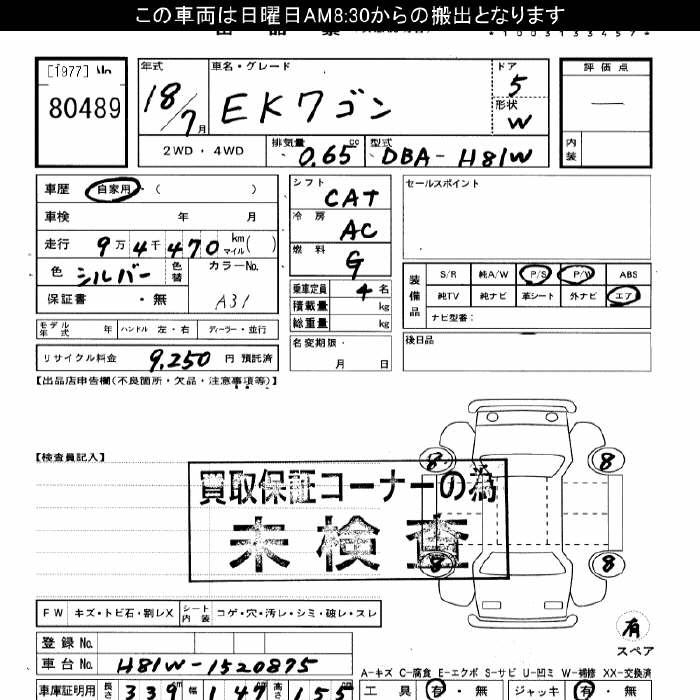 この車両は日曜日AM8:30からの搬出となります
[1977] No
80489
年式 18/7月
車名・グレード EKワゴン
ドア 5
形状 W
評価点 —
内装
2WD・4WD
排気量 0.65 cc
型式 DBA-H81W
車歴 自家用 ( )
車検 年 月
走行 9万4千470 km マイル( )
色 シルバー 色替 カラーNo. A31
保証書 ・無
モデル年式 年 ハンドル 左・右 ディーラー・並行
リサイクル料金 9,250 円 預託済
シフト CAT
冷房 AC
燃料 G
乗車定員 4 名
積載量 kg
総重量 kg
名変期限・ 月 日
セールスポイント
装備品 S/R 純A/W P/S P/W ABS
純TV 純ナビ 革シート 外ナビ エア
ナビ型番:
後日品
【出品店申告欄(不良箇所・欠品・注意事項等)】
【検査員記入】
買取保証コーナーの為
未検査
8 8
8 8
有
スペア
FW キズ・トビ石・割レX シート内装 コゲ・穴・汚レ・シミ・破レ・スレ
登録 No.
車台 No. H81W-1520875
A-キズ C-腐食 E-エクボ S-サビ U-凹ミ W-補修 XX-交換済
車庫証明用 長さ 339 幅 147 高さ 155
工具 有・無 ジャッキ 有・無